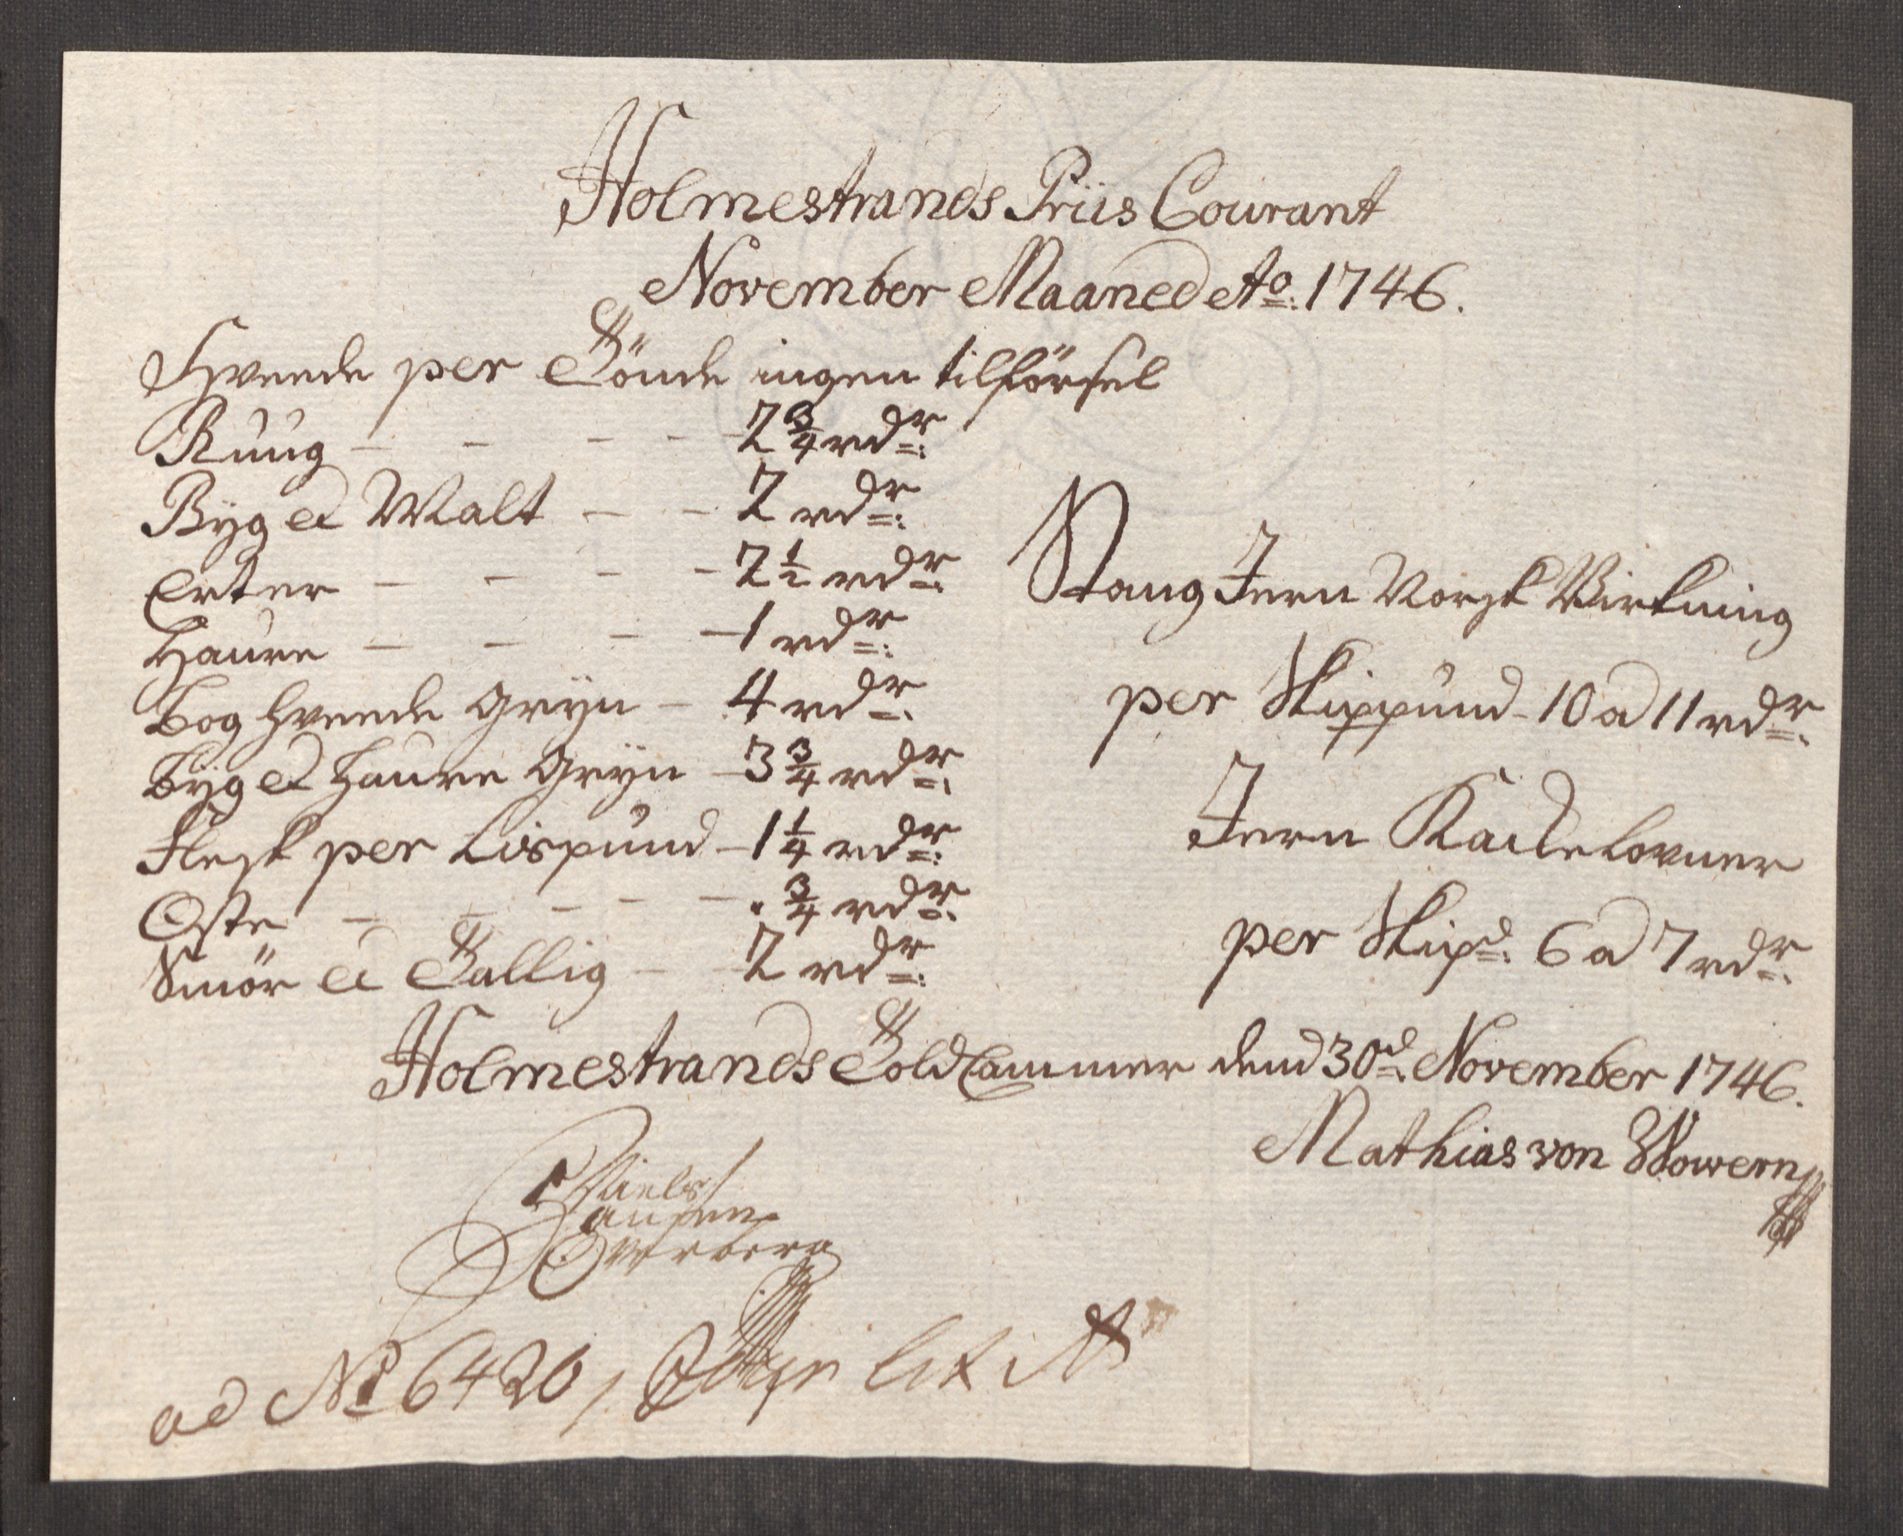 Holmestrands Priis Courant
November Maaned Ao: 1746.
Hveede per Tönde ingen tilförsel
Ruug - - - - 2 3/4 rdr:
Byg et Malt - - 2 rdr:
Erter - - - - 2 1/2 rdr:
Haure - - - - 1 rdr:
Boghveede Gryn - 4 rdr:
Byg et Haure Gryn - 3 3/4 rdr:
Flesk per Lispund - 1 1/4 rdr:
Oste - - - - - . 3/4 rdr:
Smör et Tallig - - 2 rdr:
Staug Jern Norsk Virkning
per Skippund - 10 a 11 rdr:
Jern Kackelovner
per Skipd: 6 a 7 rdr:
Holmestrands Told Cammer dend 30d: November 1746.
Mathias von Wowern
Niels
Hansen
Overberg
ad No 6426, lit A